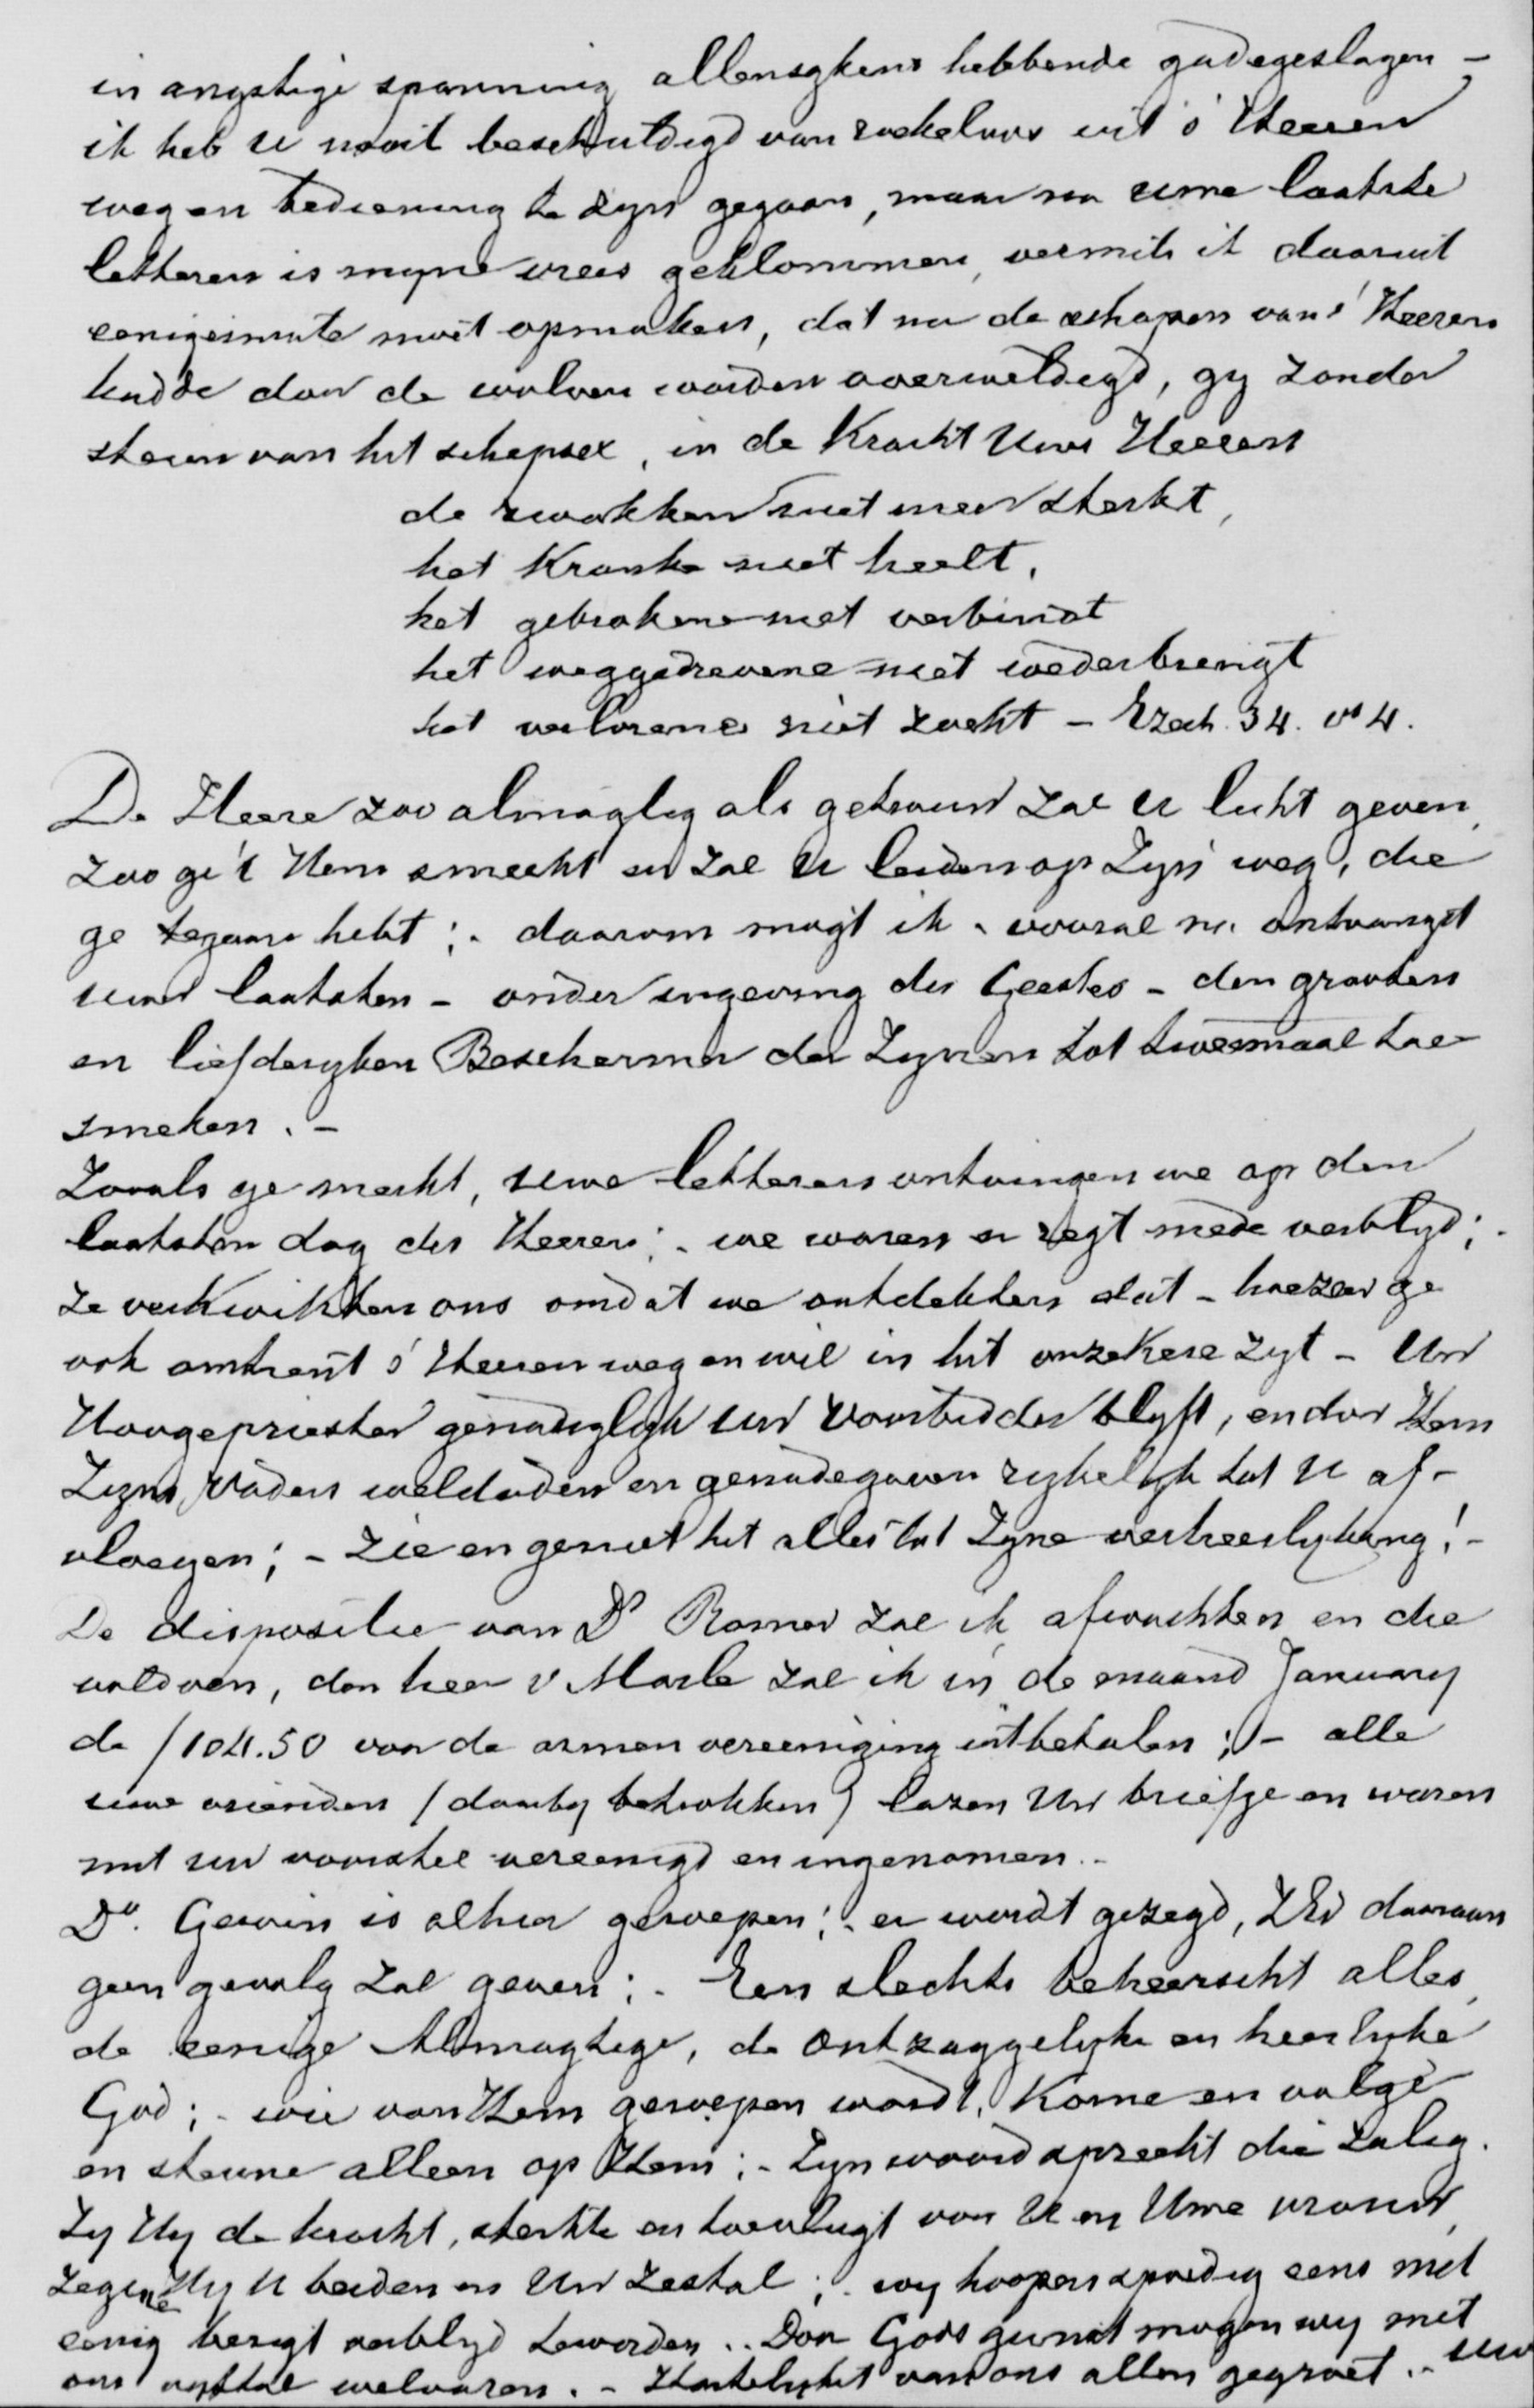 in angstige spanning allenzykens hebbende gadegeslagen –
ik heb U nooit beschuldigd van roekeloos uit 's Heeren
weg en bediening te zyn gegaan, maar na uwe laatste
letteren is myne vrees geklommen, vermits ik daaruit
eenigermate moet opmaken, dat nu de schapen van 's Heeren
kudde door de wolven worden overweldigd, gy zonder
steun van het schepsel, in de Kracht Uws Heeren
de zwakken niet meer sterkt,
het Kranke niet heelt,
het gebrokene niet verbindt
het weggedrevene niet wederbrengt
het verlorene niet zoekt – Ezech. 34. vs 4.
De Heere zoo almagtig als getrouw zal U licht geven,
zoo ge 't Hem smeekt en zal U leiden op Zyn weg, die
ge te gaan hebt; - daarom mogt ik - vooral na ontvangst
uwer laatsten – onder ingeving des Geestes – den grooten
en liefderyken Beschermer der Zynen tot tweemaal toe
smeken. –
Zooals ge merkt, uwe letteren ontvingen we op den
laatsten dag des Heeren; - we waren er regt mede verblyd; -
ze verkwikten ons omdat we ontdekten dat – hoezeer ge
ook omtrent 's Heeren weg en wil in het onzekere zyt – Uw
Hoogepriester genadiglyk uw Voorbidder blyft, en door Hem
Zyns Vaders weldaden en genadegaven rykelyk tot U af-
vloeyen; – zie en geniet het alles tot Zyne verheerlyking! –
De dispositie van Ds Romer zal ik afwachten en die
voldoen, den heer v Marle zal ik in de maand January
de f 104.50 van de armen vereeniging uitbetalen; – alle
uwe vrienden (daarby betrokken) lazen Uw briefje en waren
met uw voorstel vereenigd en ingenomen. -
Ds. Gewin is alhier geroepen; - er wordt gezegd, ZEw daaraan
geen gevolg zal geven; - Een slechts beheerscht alles,
de eenige Almagtige, de ontzaggelyke en heerlyke
God; - wie van Hem geroepen wordt, Kome en volge
en steune alleen op Hem; - Zyn woord spreekt die zalig.
Zy Hy de kracht, sterkte en toevlugt van U en Uwe vrouw,
zegene Hy U beiden en Uw zestal; - wy hoopen spoedig eens met
eenig berigt verblyd te worden. - Door Gods gunst mogen wy met
ons vyftal welvaren. – Hartelykst van ons allen gegroet. - Uw